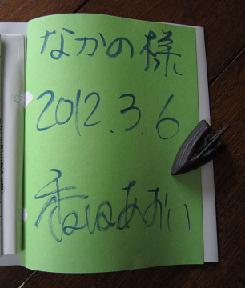 なかの様
2012.3.6
香山あおい